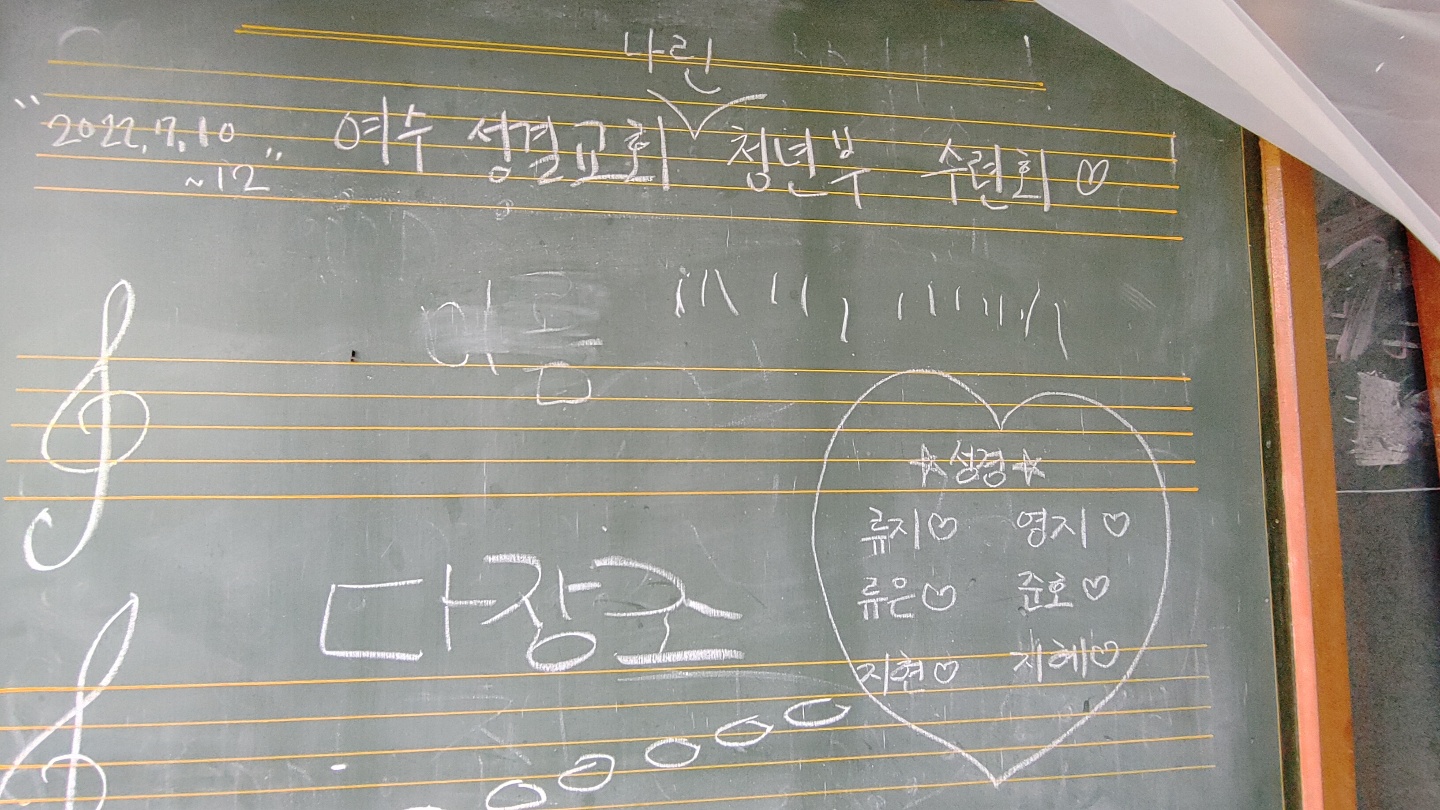 나린
"2022.7.10 여수 성결교회 ∨ 청년부 수련회 ♡
~12"
이름
☆성경☆
류지♡ 영지♡
류은♡ 준호♡
지현♡ 지혜♡
다장조